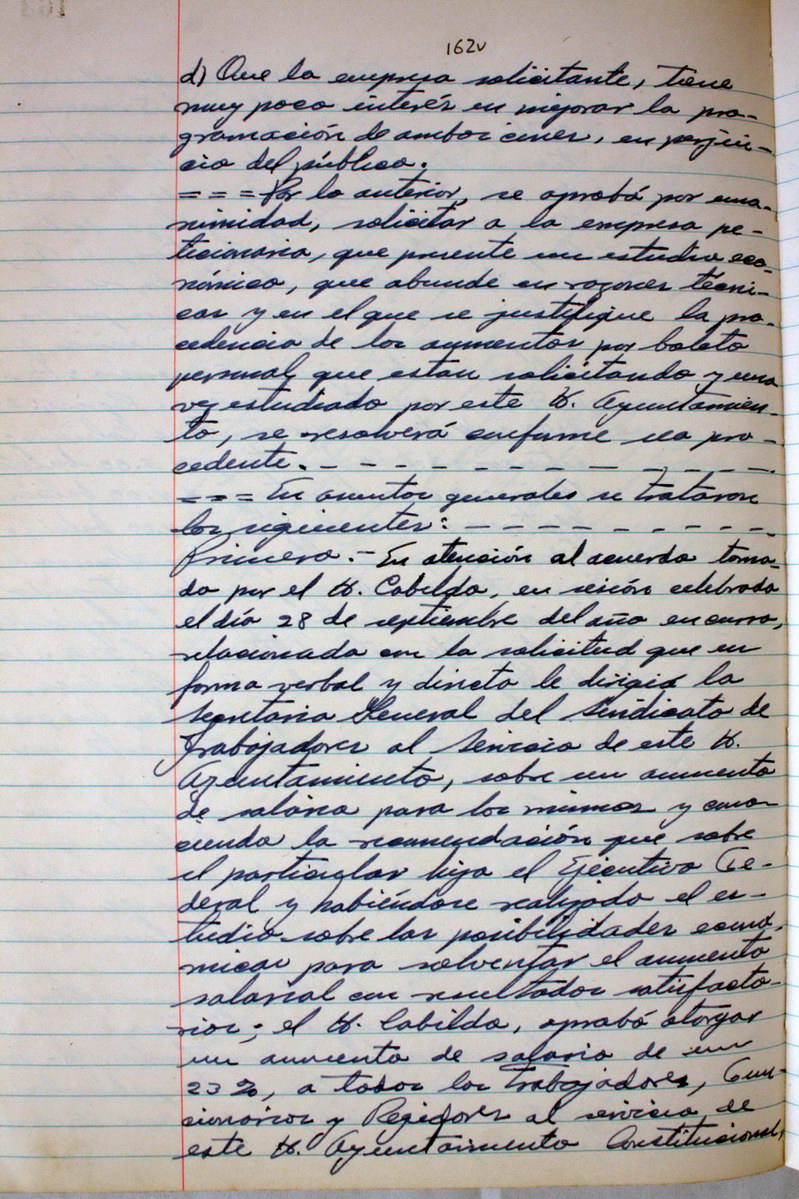 162v
d) Que la empresa solicitante, tiene
muy poco interés en mejorar la pro-
gramación de ambos cines, en perjui-
cio del público.
= = = Por lo anterior, se aprobó por una-
nimidad, solicitar a la empresa pe-
ticionaria, que presente un estudio eco-
nómico, que abunde en razones técni-
cas y en el que se justifique la pro-
cedencia de los aumentos por boleto
personal que estan solicitando y una
vez estudiado por este H. Ayuntamien-
to, se resolverá conforme sea pro-
cedente. - - - - - - - - - - - -
= = = En asuntos generales se trataron
los siguientes: - - - - - - - - -
Primero.- En atención al acuerdo toma-
do por el H. Cabildo, en sesión celebrada
el día 28 de septiembre del año en curso,
relacionada con la solicitud que en
forma verbal y directa le dirigió la
Secretaria General del Sindicato de
Trabajadores al Servicio de este H.
Ayuntamiento, sobre un aumento
de salario para los mismos y cono-
ciendo la recomendación que sobre
el particular hizo el Ejecutivo Fe-
deral y habiéndose realizado el es-
tudio sobre las posibilidades econó-
micas para solventar el aumento
salarial con resultados satisfacto-
rios; el H. Cabildo, aprobó otorgar
un aumento de salario de un
23%, a todos los Trabajadores, Fun-
cionarios y Regidores al servicio de
este H. Ayuntamiento Constitucional,